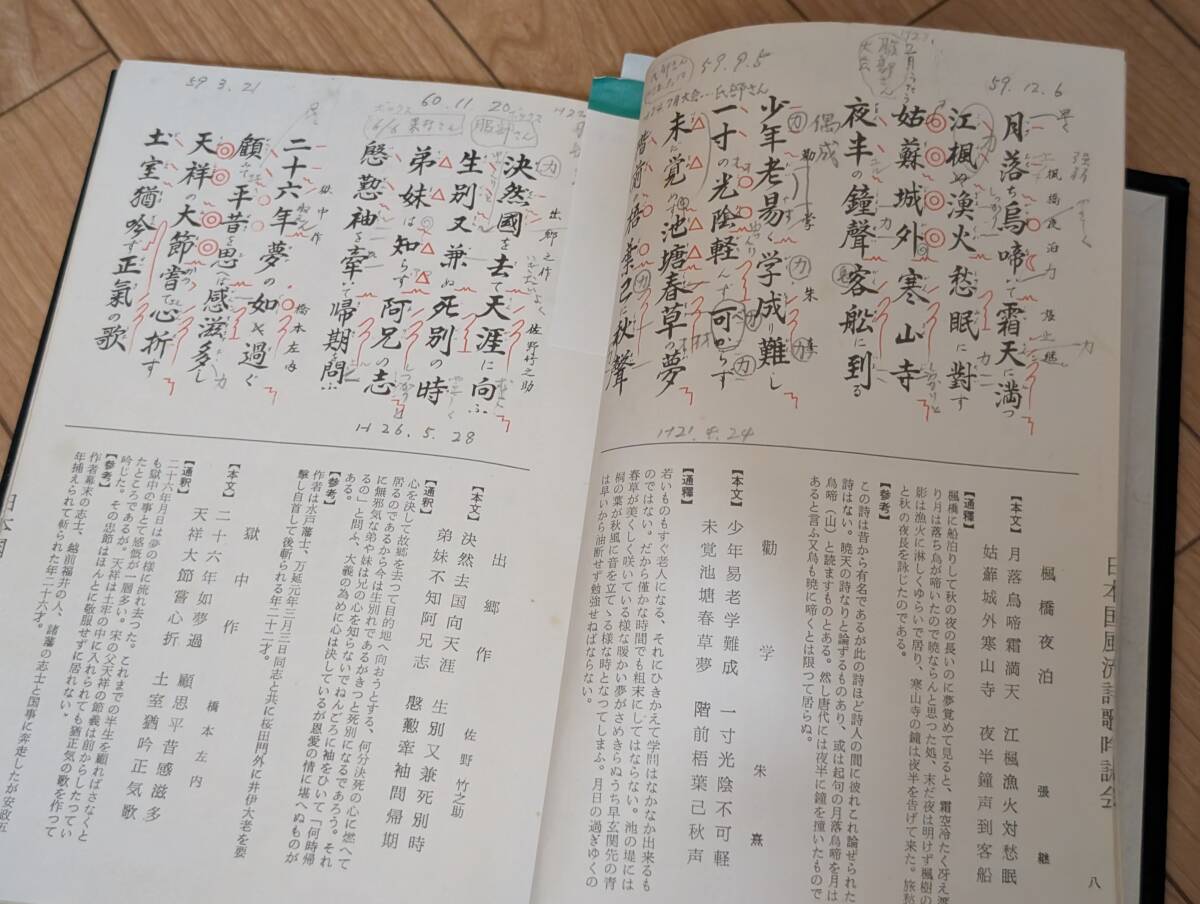 日本国風流詩歌吟詠会
八
59.12.6
楓橋夜泊
張継
月落ち烏啼いて霜天に満つ
江楓や漁火愁眠に對す
姑蘇城外寒山寺
夜半の鐘聲客舩に到る
59.9.5
偶成
勧学
朱熹
少年老易く学成り難し
一寸の光陰軽んず可からず
未だ覚めず池塘春草の夢
階前の梧葉已に秋聲
H21.4.24
楓橋夜泊
張継
【本文】月落烏啼霜満天 江楓漁火対愁眠
姑蘇城外寒山寺 夜半鐘声到客船
【通釋】
楓橋に船泊りして秋の夜の長いのに夢覚めて見ると、霜空冷たく冴え渡
り月は落ち烏が啼いたので暁ならんと思った処、末だ夜は明けず楓樹の
影は漁火に淋しくゆらいで居り、寒山寺の鐘は夜半を告げて来た。旅愁
と秋の夜長を詠じたのである。
【参考】
この詩は昔から有名であるが此の詩ほど詩人の間に彼れこれ論ぜられた
詩はない。暁天の詩なりと論ずるものあり、或は起句の月落烏啼を月は
烏啼(山)と読ますものとある。然し唐代には夜半に鐘を撞いたもので
あると言ふ又烏も暁に啼くとは限つて居らぬ。
勸学
朱熹
【本文】少年易老学難成 一寸光陰不可軽
未覚池塘春草夢 階前梧葉己秋声
【通釋】
若いものもすぐ老人になる、それにひきかえて学問はなかなか出来るも
のではない。だから僅かな時間でも粗末にしてはならない。池の堤には
春草が美しく咲いている様な暖かい夢がさめきらぬうち早玄関先の青
桐の葉が秋風に音を立てゝる様な時となつてしまふ。月日の過ぎゆくの
は早いから油断せず勉強せねばならない。
60.11.20
出郷之作
佐野竹之助
決然國を去て天涯に向ふ
生別又兼ぬ死別の時
弟妹は知らず阿兄の志
慇懃袖を牽いて帰期を問ふ
H26.5.28
59.3.21
獄中作
橋本左内
二十六年夢の如く過ぐ
顧みて平昔を思へば感滋多し
天祥の大節嘗て心折す
土室猶吟ず正氣の歌
出郷作
佐野竹之助
【本文】決然去国向天涯 生別又兼死別時
弟妹不知阿兄志 慇懃牽袖問帰期
【通釈】
心を決して故郷を去つて目的地へ向おうとする、何分決死の心に燃へて
居るのであるから今は生別れであるがきつと死別になるであろう。それ
に無邪気な弟や妹は兄の心を知らないでねんごろに袖をひいて「何時帰
るの」と問ふ、大義の為めに心は決しているが恩愛の情に堪へぬものが
ある。
【参考】
作者は水戸藩士、万延元年三月三日同志と共に桜田門外に井伊大老を要
撃し自首して後斬られる年二十二才。
獄中作
橋本左内
【本文】二十六年如夢過 顧思平昔感滋多
天祥大節嘗心折 土室猶吟正気歌
【通釈】
二十六年月日は夢の様に流れ去つた。これまでの半生を顧ればさなくと
も獄中の事とて感慨が一層多い。宋の父天祥の節義は前からしたつてい
たところであるが。天祥は土牢の中に入れられても猶正気の歌を作つて
吟じた。その忠節はほんとに敬服せずに居れない。
【参考】
作者幕末の志士、越前福井の人、諸藩の志士と国事に奔走したが安政五
年捕えられて斬られた年二十六才。